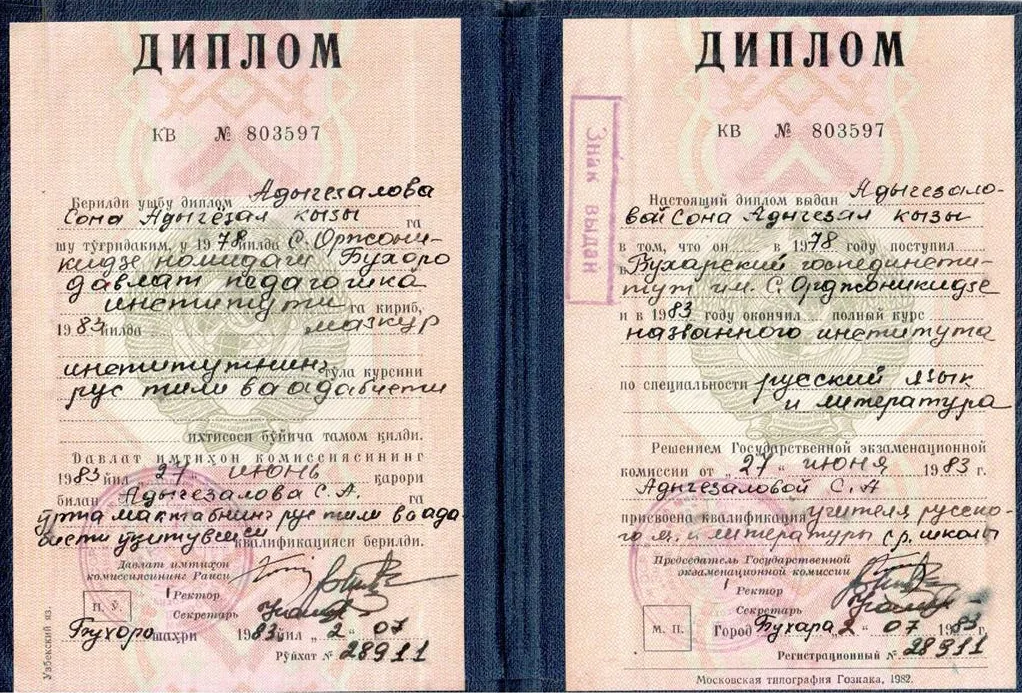 ДИПЛОМ
КВ № 803597
Берилди ушбу диплом Адыгезалова
Сона Адыгезал кызы га
шу тўғридаким, у 1978 йилда С. Орджони-
кидзе номидаги Бухоро
давлат педагогика
институти га кириб,
1983 йилда мазкур
институтнинг тўла курсини
рус тили ва адабиети
ихтисоси бўйича тамом қилди.
Давлат имтиҳон комиссиясининг
1983 йил „27“ июнь қарори
билан Адыгезалова С. А. га
ўрта мактабнинг рус тили ва ада-
биети ўқитувчиси квалификацияси берилди.
Давлат имтиҳон
комиссиясининг Раиси
Ректор
Секретарь
П. Ў.
Бухоро шаҳри 1983 йил „2“ 07
Рўйхат № 28911
Узбекский яз.
ДИПЛОМ
КВ № 803597
Знак выдан
Настоящий диплом выдан Адыгезало-
вой Сона Адыгезал кызы
в том, что он в 1978 году поступил
в Бухарский госпединсти-
тут им. С. Орджоникидзе
и в 1983 году окончил полный курс
названного института
по специальности русский язык
и литература
Решением Государственной экзаменационной
комиссии от „27“ июня 1983 г.
Адыгезаловой С. А
присвоена квалификация учителя русско-
го яз. и литературы ср. школы
Председатель Государственной
экзаменационной комиссии
Ректор
Секретарь
М. П.
Город Бухара „2“ 07 1983 г.
Регистрационный № 28911
Московская типография Гознака, 1982.